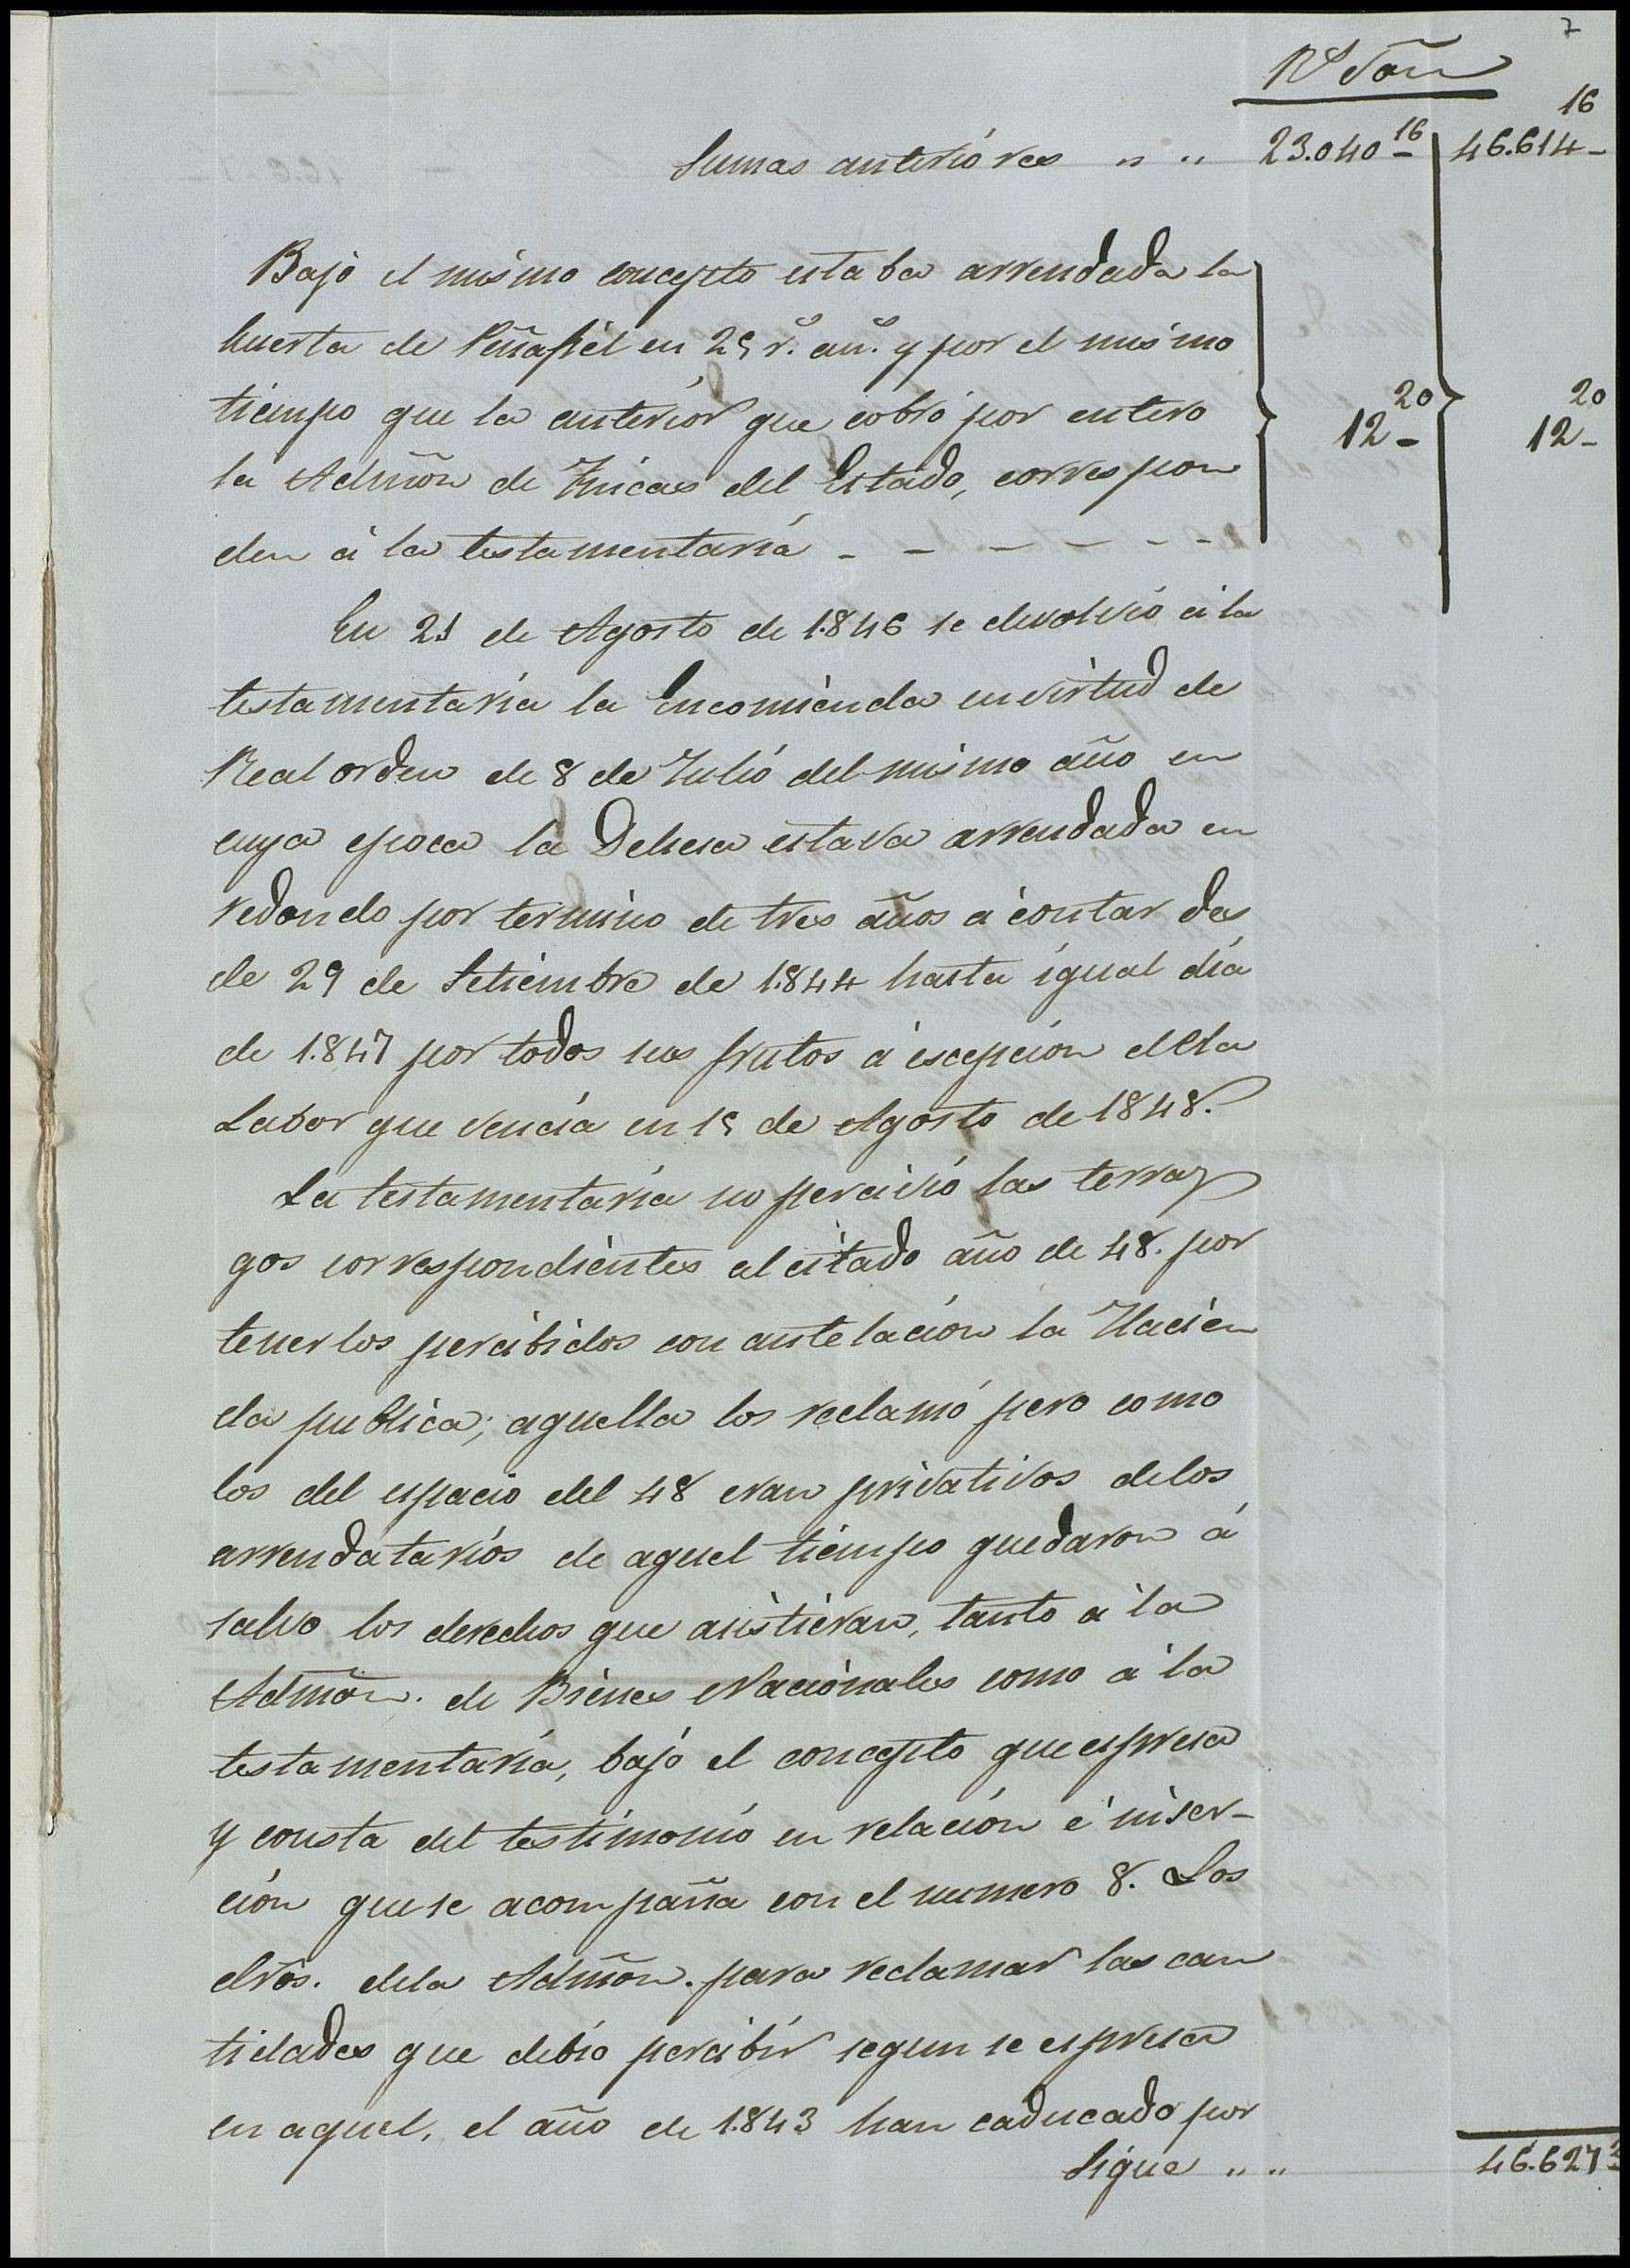 7
Rs Von
Sumas anterióres " " 23.040 16 46.614 16
Bajo el mismo concepto estaba arrendada la
huerta de Peñafiél en 25 rs. an.s y por el mismo
tiempo que la anteriór que cobró por entero
la Admñon de Fincas del Estado, correspon 12 20 12 20
den á la testamentaría - - - - - -
En 21 de Agosto de 1.846 se devolvió á la
testamentaría la Encomiénda en virtud de
Real orden de 8 de Julió del mismo año en
cuya epoca la Dehesa estava arrendada en
redondo por termino de tres años á contar des
de 29 de Setiembre de 1.844 hasta igual día
de 1.847 por todos sus frutos á escepción dela
Labor que vencía en 15 de Agosto de 1848.
La testamentaría no percivió las terraz
gos correspondiéntes al citado año de 48. por
tenerlos percibidos con antelación la Hacién
da publica; aquella los reclamó pero como
los del espacio del 48 eran privativos delos
arrendatariós de aquel tiémpo quedaron á
salvo los derechos que asistiéran, tanto á la
Admñon. de Biénes Naciónales como á la
testamentaría, bajó el concepto que espresa
y consta del testimonió en relación é inser-
ción que se acompaña con el numero 8. Los
dr̃os. dela Admñon. para reclamar las can
tidades que debío percibír segun se espresa
en aquel, el año de 1.843 han caducado por
Sigue " " 46.627